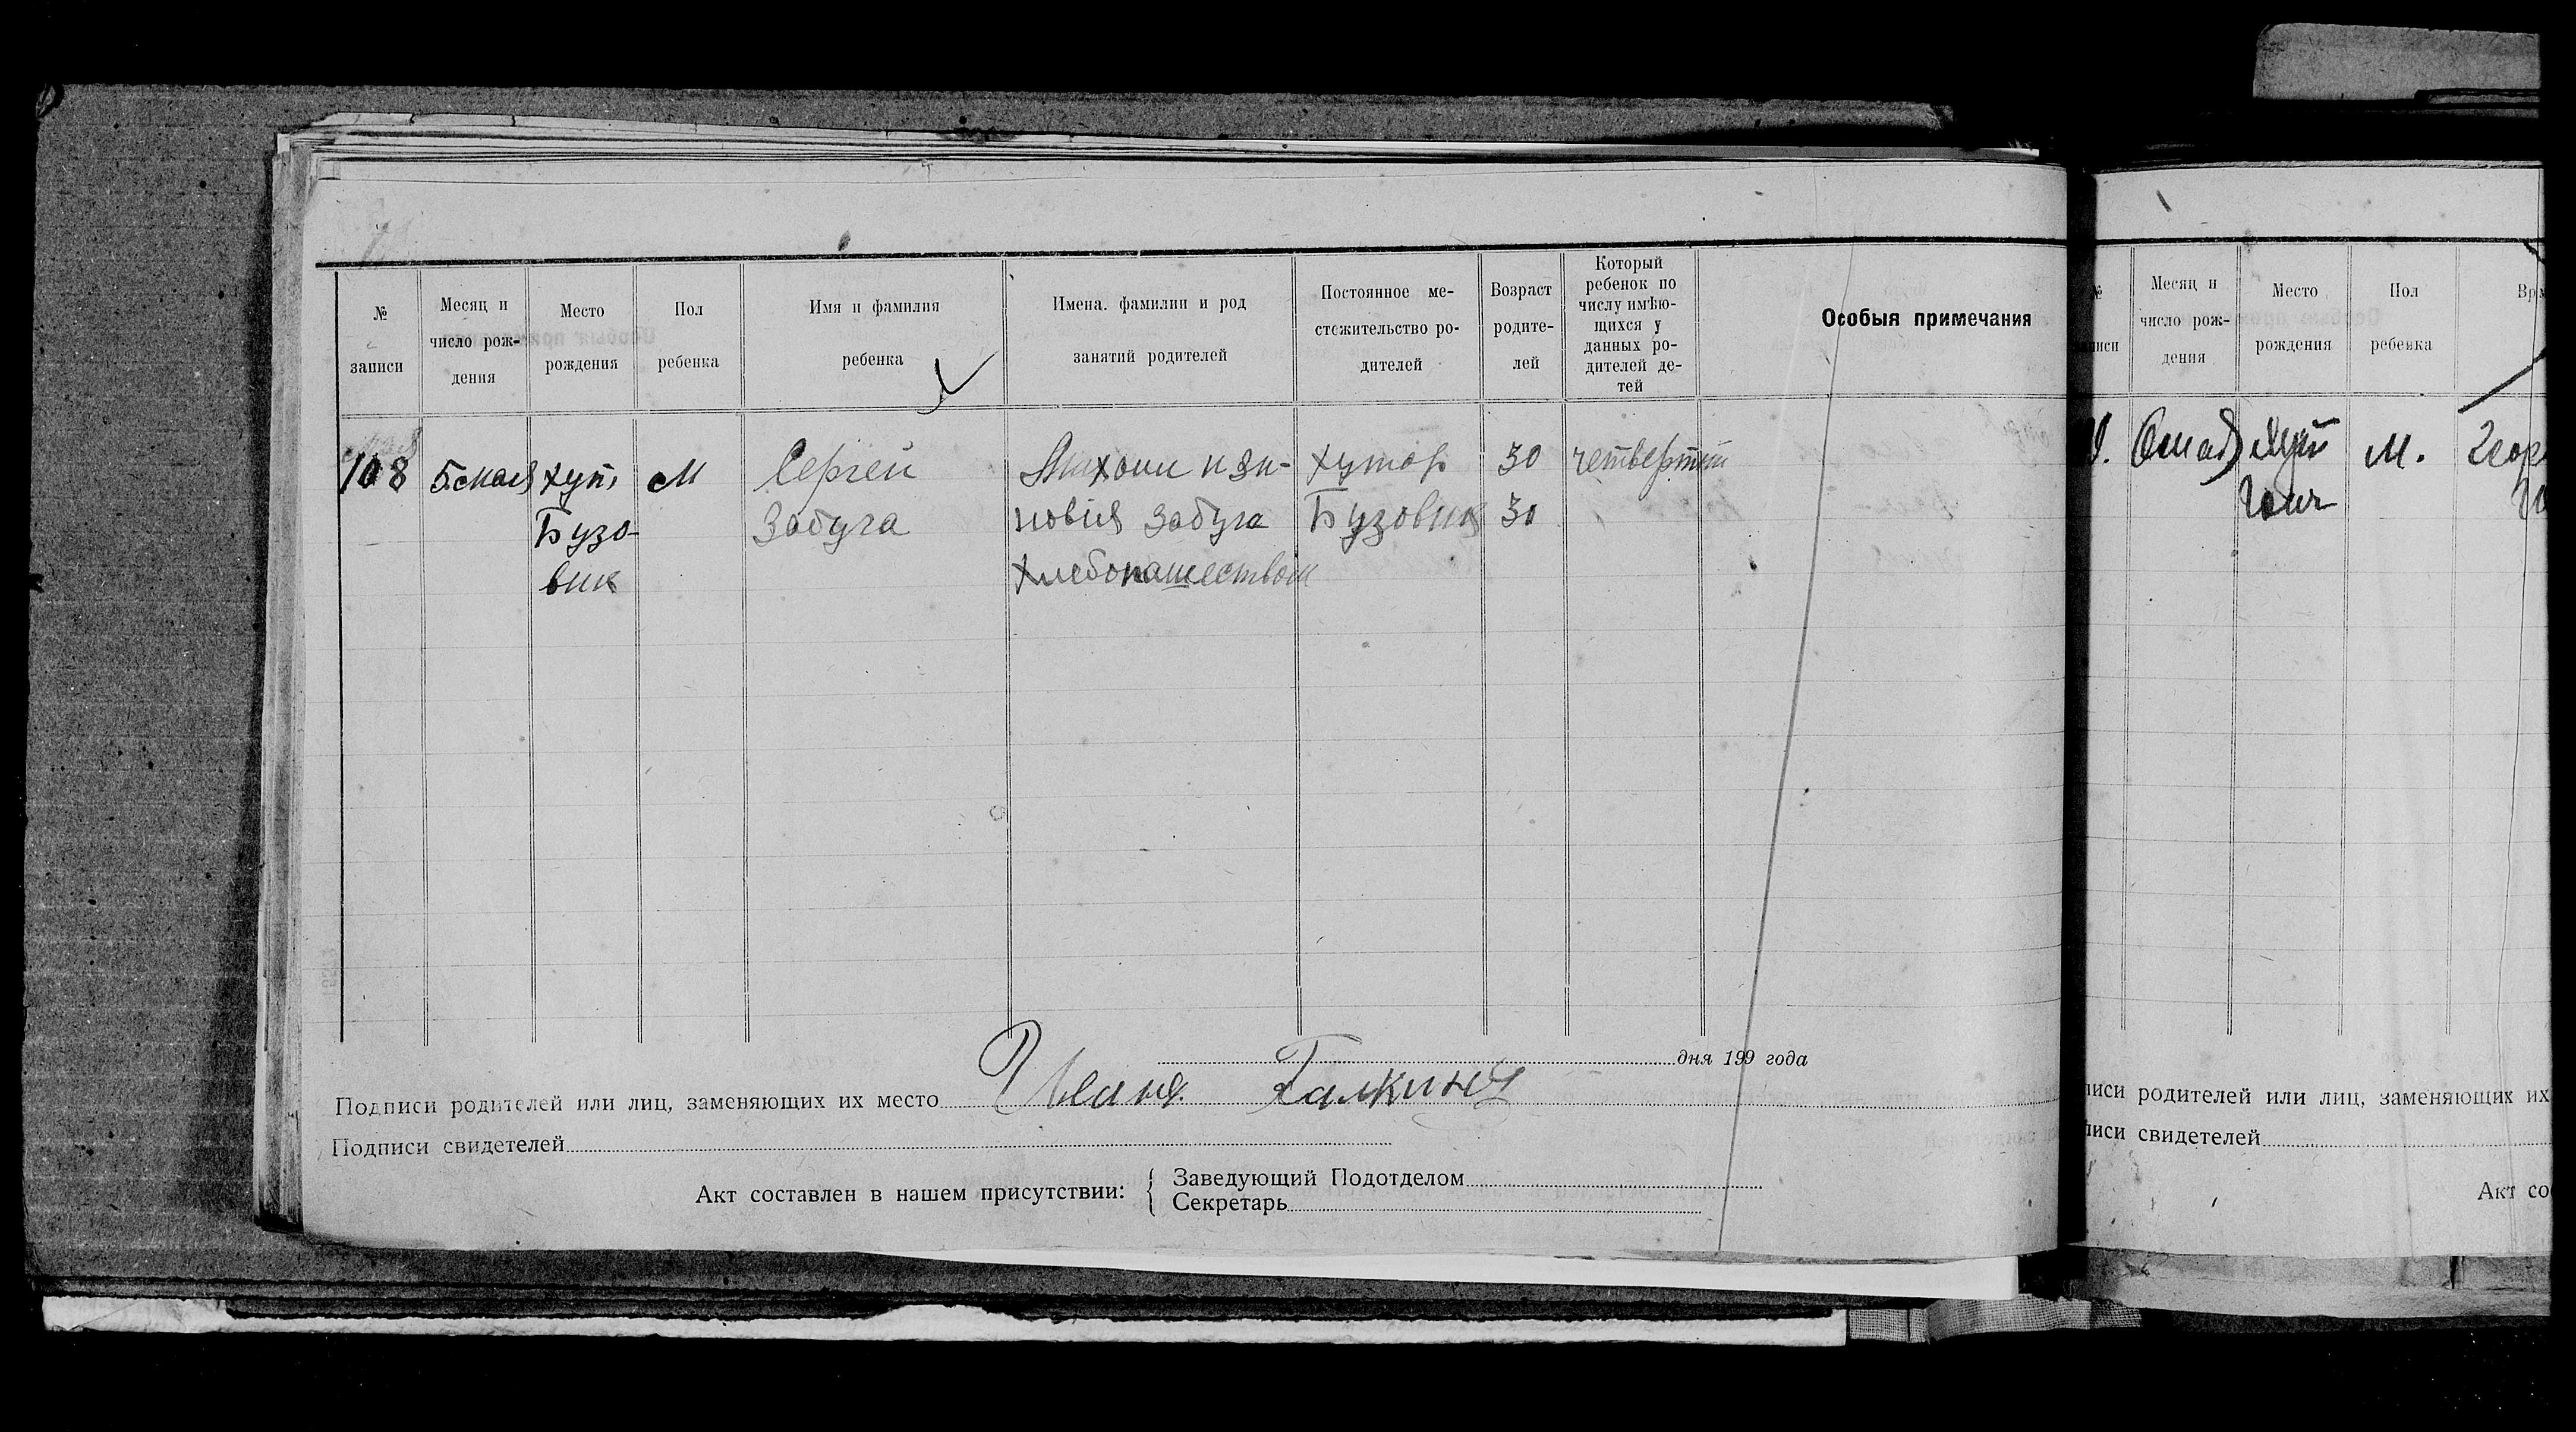 № записи
Месяц и число рождения
Место рождения
Пол ребенка
Имя и фамилия ребенка
Имена. фамилии и род занятий родителей
Постоянное местожительство родителей
Возраст родителей
Который ребенок по числу имѣющихся у данных родителей детей
Особыя примечания
108 5 мая хут. М Сергей хутор 30 четвертый
Бузо- Забуга новия Забуга Бузовик 30
вик хлебопашеством
дня 199 года
Подписи родителей или лиц, заменяющих их место Иванъ Галкинъ
Подписи свидетелей
Акт составлен в нашем присутствии: { Заведующий Подотделом
Секретарь
№
иси
Месяц и
число рож-
дения
Место
рождения
Пол
ребенка
М.
иси родителей или лиц, заменяющих их
иси свидетелей
Акт со